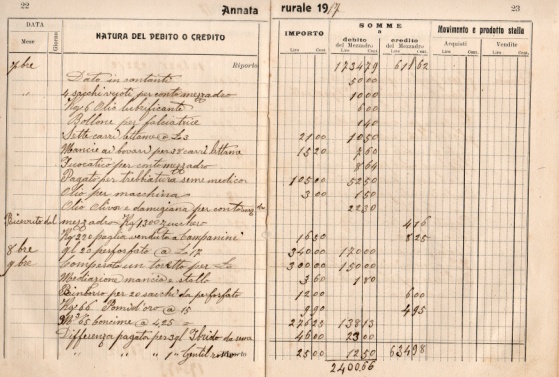 22
Annata rurale 1917
23
DATA
Mese
Giorno
NATURA DEL DEBITO O CREDITO
IMPORTO
Lire Cent.
SOMME
a
debito del Mezzadro
Lire Cent.
credito del Mezzadro
Lire Cent.
Movimento e prodotto stalla
Acquisti
Lire Cent.
Vendite
Lire Cent.
7bre Riporto 1734 79 618 62
Dato in contanti 50 00
4 sacchi vuoti per conto mezzadro 10 00
Kg 6 Olio lubrificante 6 00
Bollone per falciatrice 1 40
Sette carri letame a L 3 21 00 10 50
Mancie ai bovari per carri lettame 15 20 7 60
per conto mezzadro 8 64
Pagato per trebbiatura seme medica 105 00 52 50
Olio per macchina 3 00 1 50
Olio Oliva e damigiana per conto 22 30
Ricevuto del mezzadro Kg zucchero 4 16
Kg paglia venduta a Campanini 16 50 8 25
8bre ql 20 perfosfato @ L 17 340 00 170 00
9bre Comperato un toretto per L 300 00 150 00
Mediazion mancia e stallo 3 60 1 80
Rimborso per 20 sacchi da perfosfato 12 00 6 00
Kg 66 Pomid'oro @ 15 9 90 4 95
concime @ 425 276 25 138 13
Differenza pagata per 3 ql Ibrido da seme 46 00 23 00
" " " 1 " Gentil rosso 25 00 12 50 634 98
2400 66